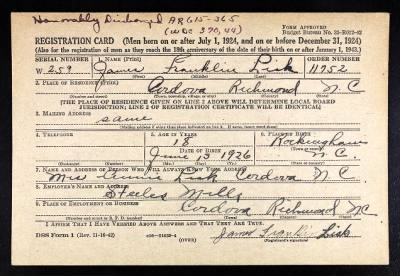 Honorably Discharged AR 615-365
(WDC 370,44)
FORM APPROVED
Budget Bureau No. 33-R012-42
REGISTRATION CARD—(Men born on or after July 1, 1924, and on or before December 31, 1924)
(Also for the registration of men as they reach the 18th anniversary of the date of their birth on or after January 1, 1943.)
SERIAL NUMBER 1. NAME (Print) ORDER NUMBER
W 259 James Franklin Lisk 11952
(First) (Middle) (Last)
2. PLACE OF RESIDENCE (Print)
Cordova Richmond N.C.
(Number and street) (Town, township, village, or city) (County) (State)
[THE PLACE OF RESIDENCE GIVEN ON LINE 2 ABOVE WILL DETERMINE LOCAL BOARD
JURISDICTION; LINE 2 OF REGISTRATION CERTIFICATE WILL BE IDENTICAL]
3. MAILING ADDRESS
same
4. TELEPHONE 5. AGE IN YEARS 6. PLACE OF BIRTH
18 Rockingham
DATE OF BIRTH
June 15 1926 N.C.
(Exchange) (Number) (Mo.) (Day) (Yr.) (State or country)
7. NAME AND ADDRESS OF PERSON WHO WILL ALWAYS KNOW YOUR ADDRESS
Mrs Annie Lisk Cordova N C
8. EMPLOYER'S NAME AND ADDRESS
Steeles Mills
9. PLACE OF EMPLOYMENT OR BUSINESS
Cordova Richmond N.C.
(Number and street or R. F. D. number) (Town) (County) (State)
I AFFIRM THAT I HAVE VERIFIED ABOVE ANSWERS AND THAT THEY ARE TRUE.
DSS Form 1 (Rev. 11-16-42) (OVER) James Franklin Lisk
(Registrant's signature)